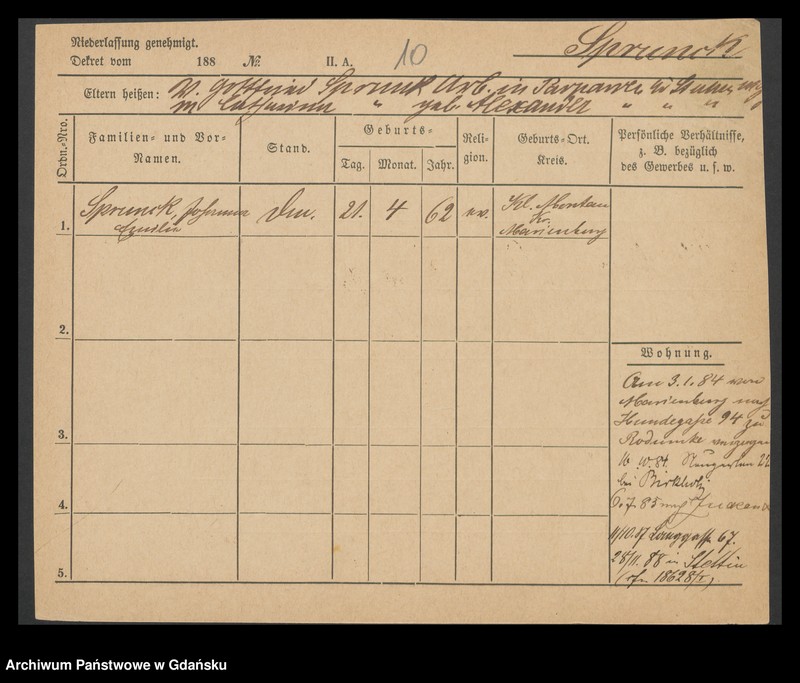 Niederlassung genehmigt.
Dekret vom 188 № II. A. 10
Sprunck
Eltern heißen: V. Gottfried Sprunck Arb. in
M. Catharina " geb. Alexander " " "
Ordn.-Nro.
Familien- und Vor-
Namen.
Stand.
Geburts-
Tag. Monat. Jahr.
Reli-
gion.
Geburts-Ort.
Kreis.
Persönliche Verhältnisse,
z. B. bezüglich
des Gewerbes u. s. w.
1. Sprunck, Johanna 21. 4 62 ev. Kl. Montau
Emilie Kr.
Marienburg
2.
Wohnung.
Am 3.1.84 von
Marienburg nach
Hundegasse 94 zu
3.
16 10.84. Neugarten 22
bei Birkholz
4. 6.7.85 nach
11/10.87 Langgasse 67.
28/11.88 in Stettin
5.
Archiwum Państwowe w Gdańsku